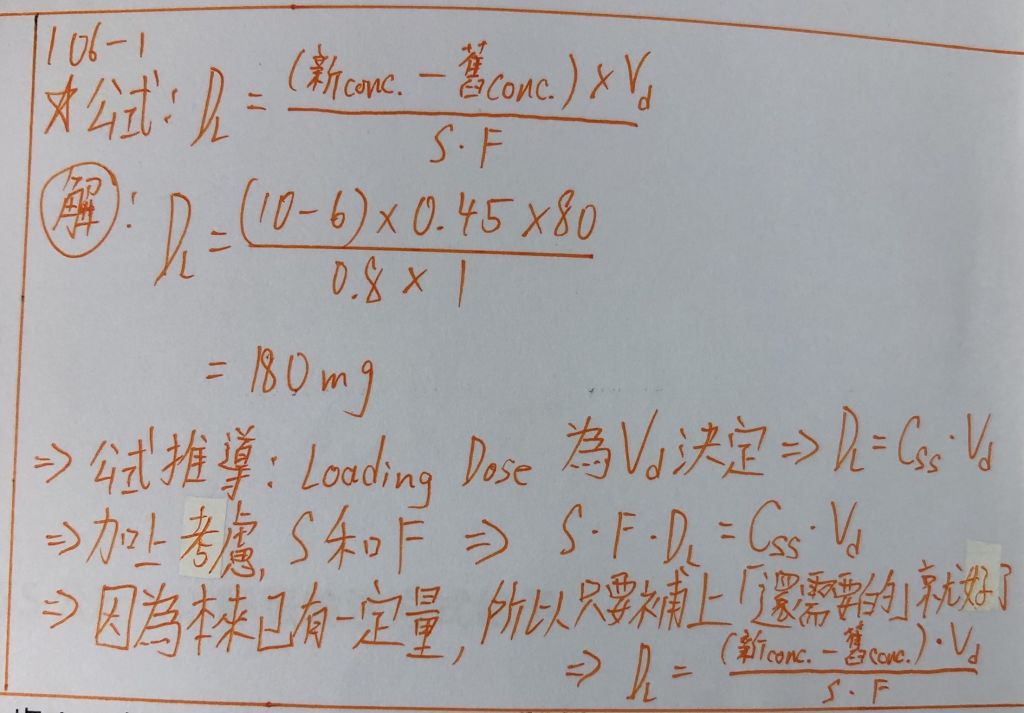 106-1
☆公式: D_L = (新conc. - 舊conc.) × V_d / S·F
解: D_L = (10-6) × 0.45 × 80 / 0.8 × 1
= 180mg
⇒ 公式推導: Loading Dose 為V_d決定 ⇒ D_L = C_ss·V_d
⇒ 加上考慮, S和F ⇒ S·F·D_L = C_ss·V_d
⇒ 因為本來已有一定量, 所以只要補上「還需要的」就好了
⇒ D_L = (新conc. - 舊conc.)·V_d / S·F